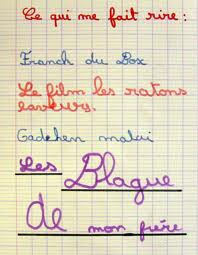 Ce qui me fait rire :
Franch du Box
Le film les ratons
laveurs.
Gadehen malui
Les Blague
de mon frère